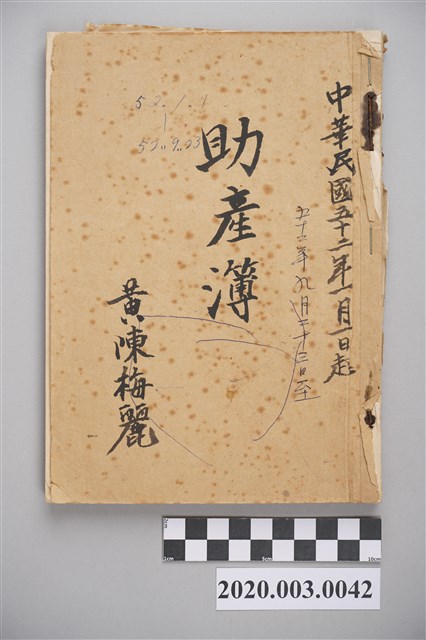 中華民國五十二年一月一日起
五十二年九月二十三日至
助產簿
黃陳梅麗
52.1.1
|
52.9.23
1cm
5cm
10cm
2020.003.0042